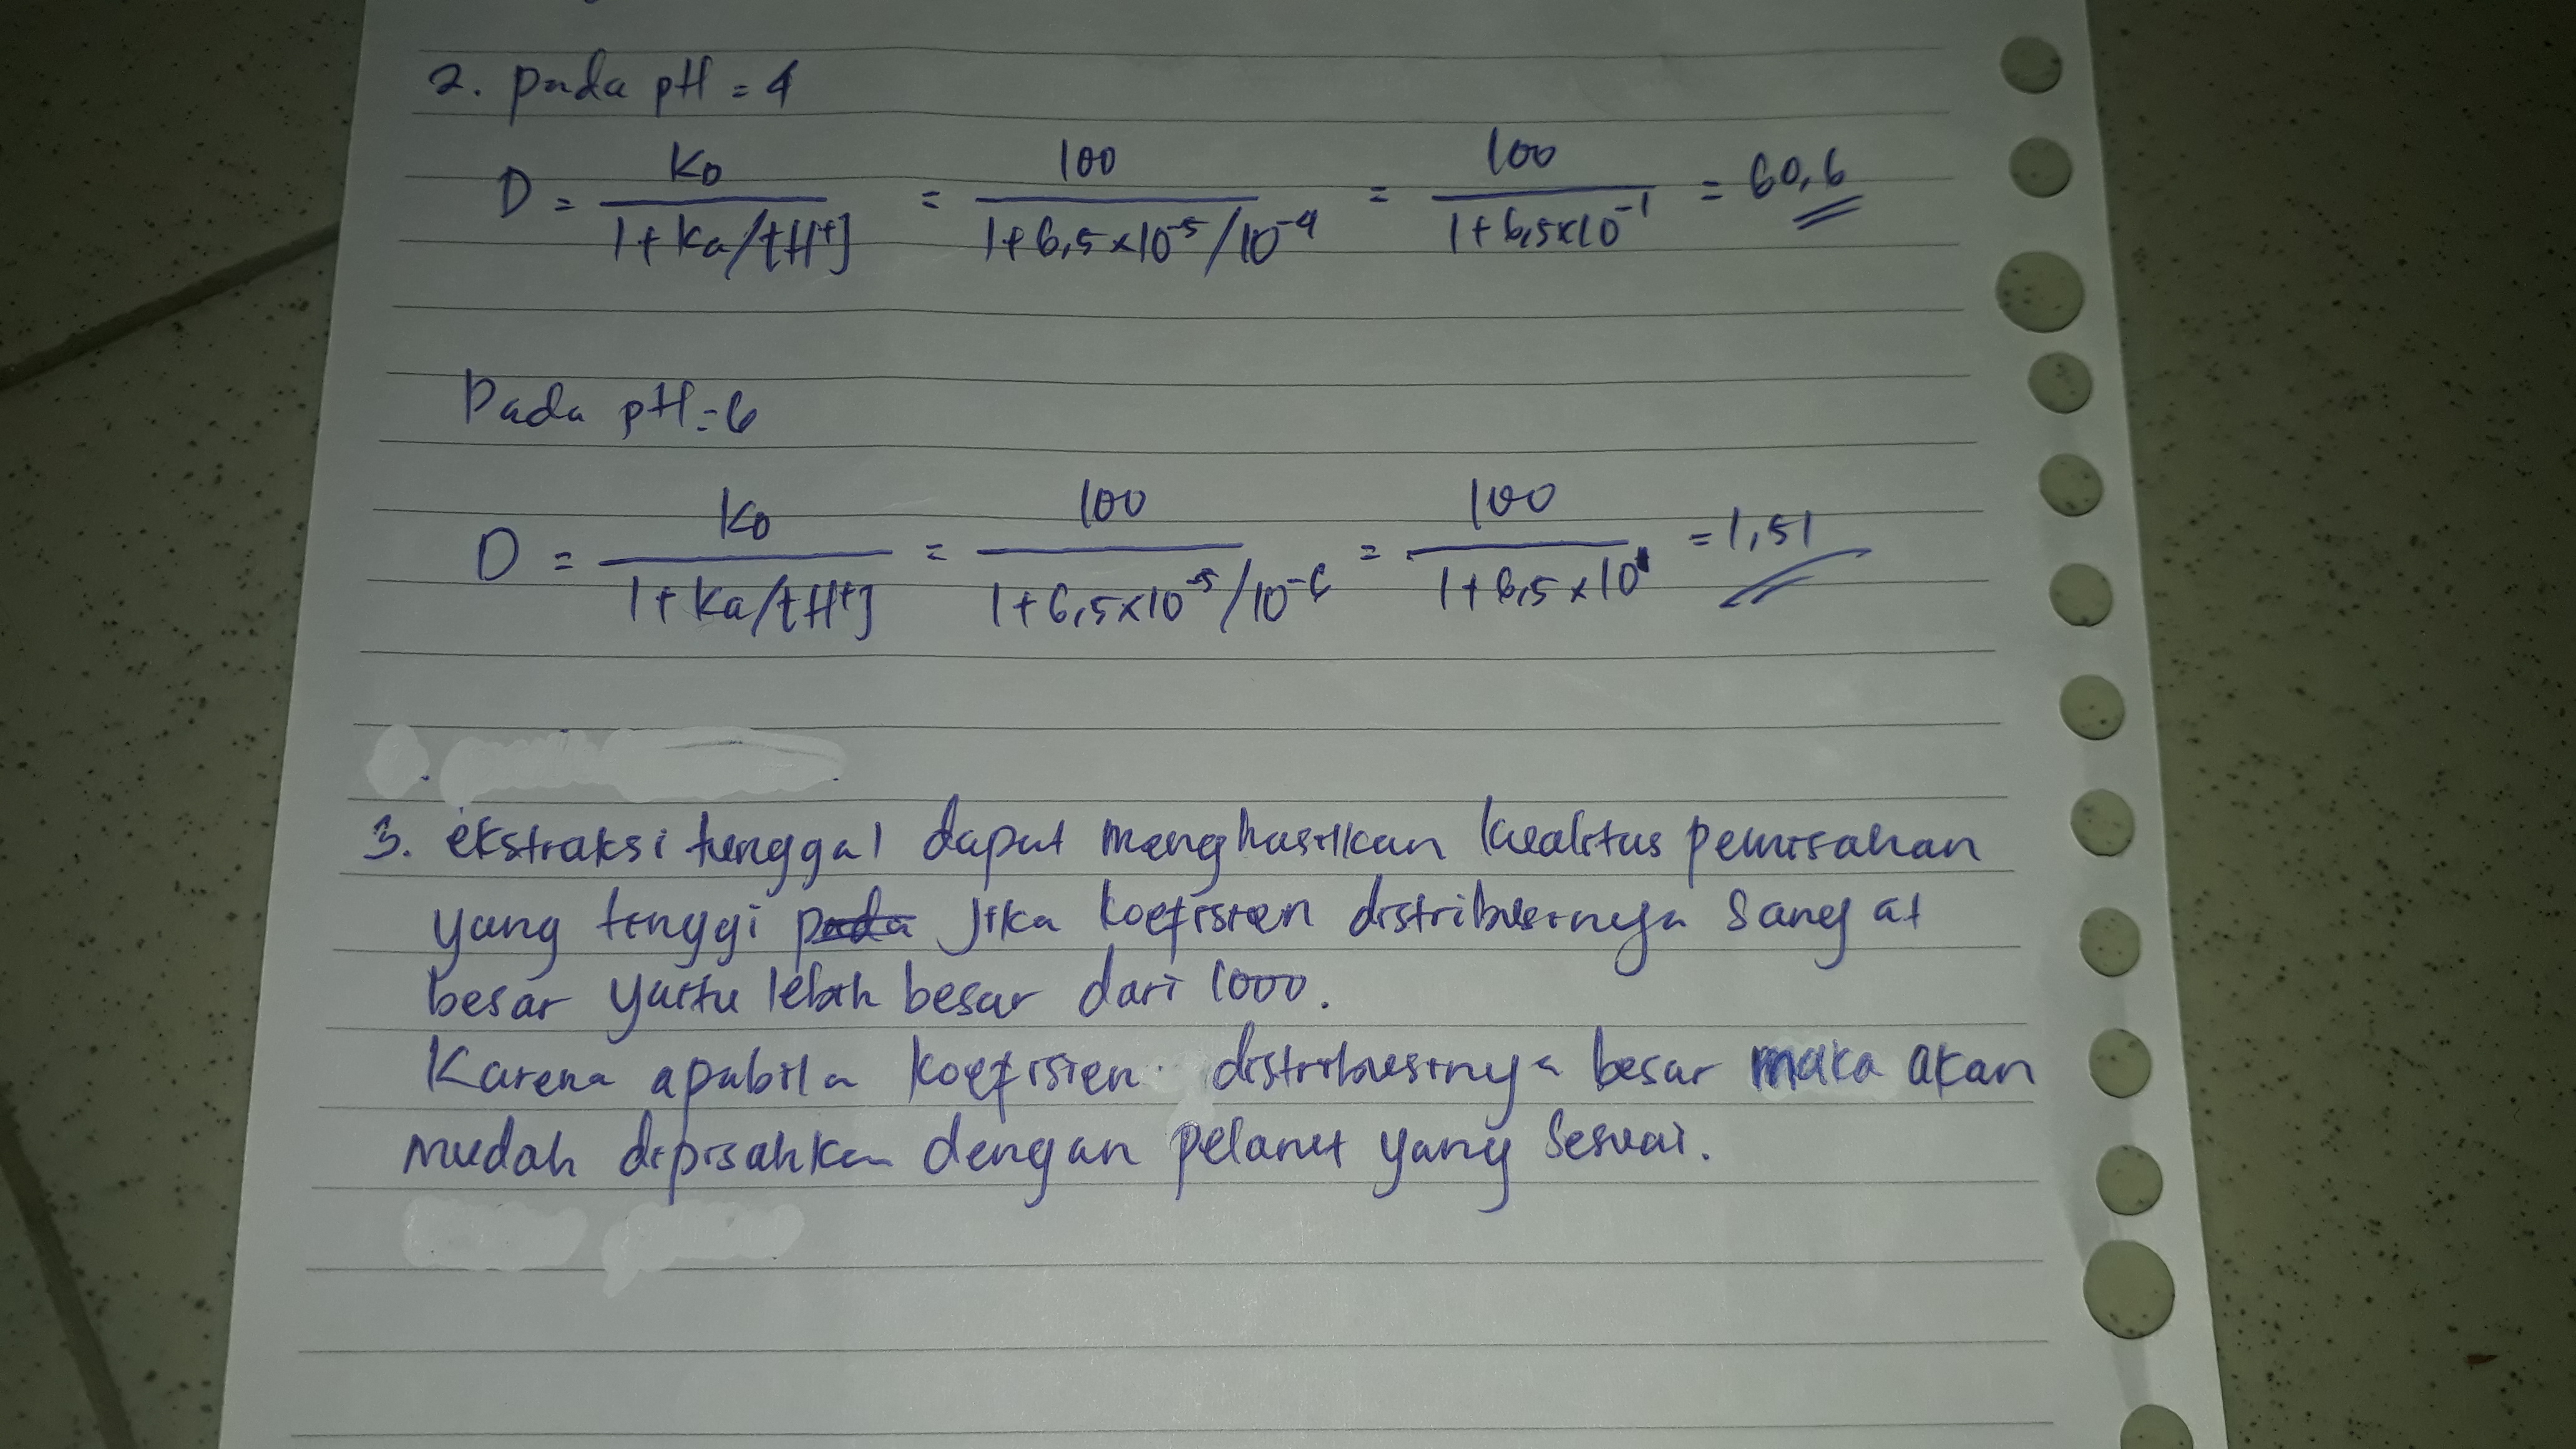 2. pada pH = 4
D = KD / 1+Ka/[H+] = 100 / 1+6,5×10^-5/10^-4 = 100 / 1+6,5×10^-1 = 60,6
Pada pH = 6
D = KD / 1+Ka/[H+] = 100 / 1+6,5×10^-5/10^-6 = 100 / 1+6,5×10^1 = 1,51
3. ekstraksi tunggal dapat menghasilkan kualitas pemisahan
yang tinggi pada jika koefisien distribusinya sangat
besar yaitu lebih besar dari 1000.
Karena apabila koefisien distribusinya besar maka akan
mudah dipisahkan dengan pelarut yang sesuai.